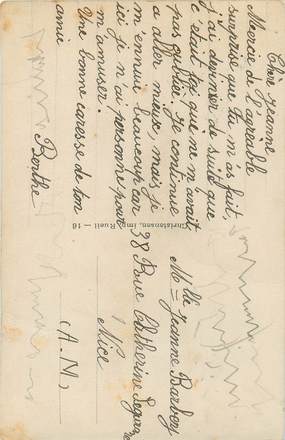 Chère Jeanne
Mercie de l'agréable
surprise que tu m'as fait,
j'ai deviner de suite que
c'était toi que ne m'avait
pas oublier. Je continue
a aller mieux, mais je
m'ennuie beaucoup car
ici je n'ai personne pour
m'amuser.
Une bonne caresse de ton
amie
Berthe
Christmann, Imp. Rueil — 16
Mlle Jeanne Barbery
38 Roue Catherine Segurane
Nice
(A.M)